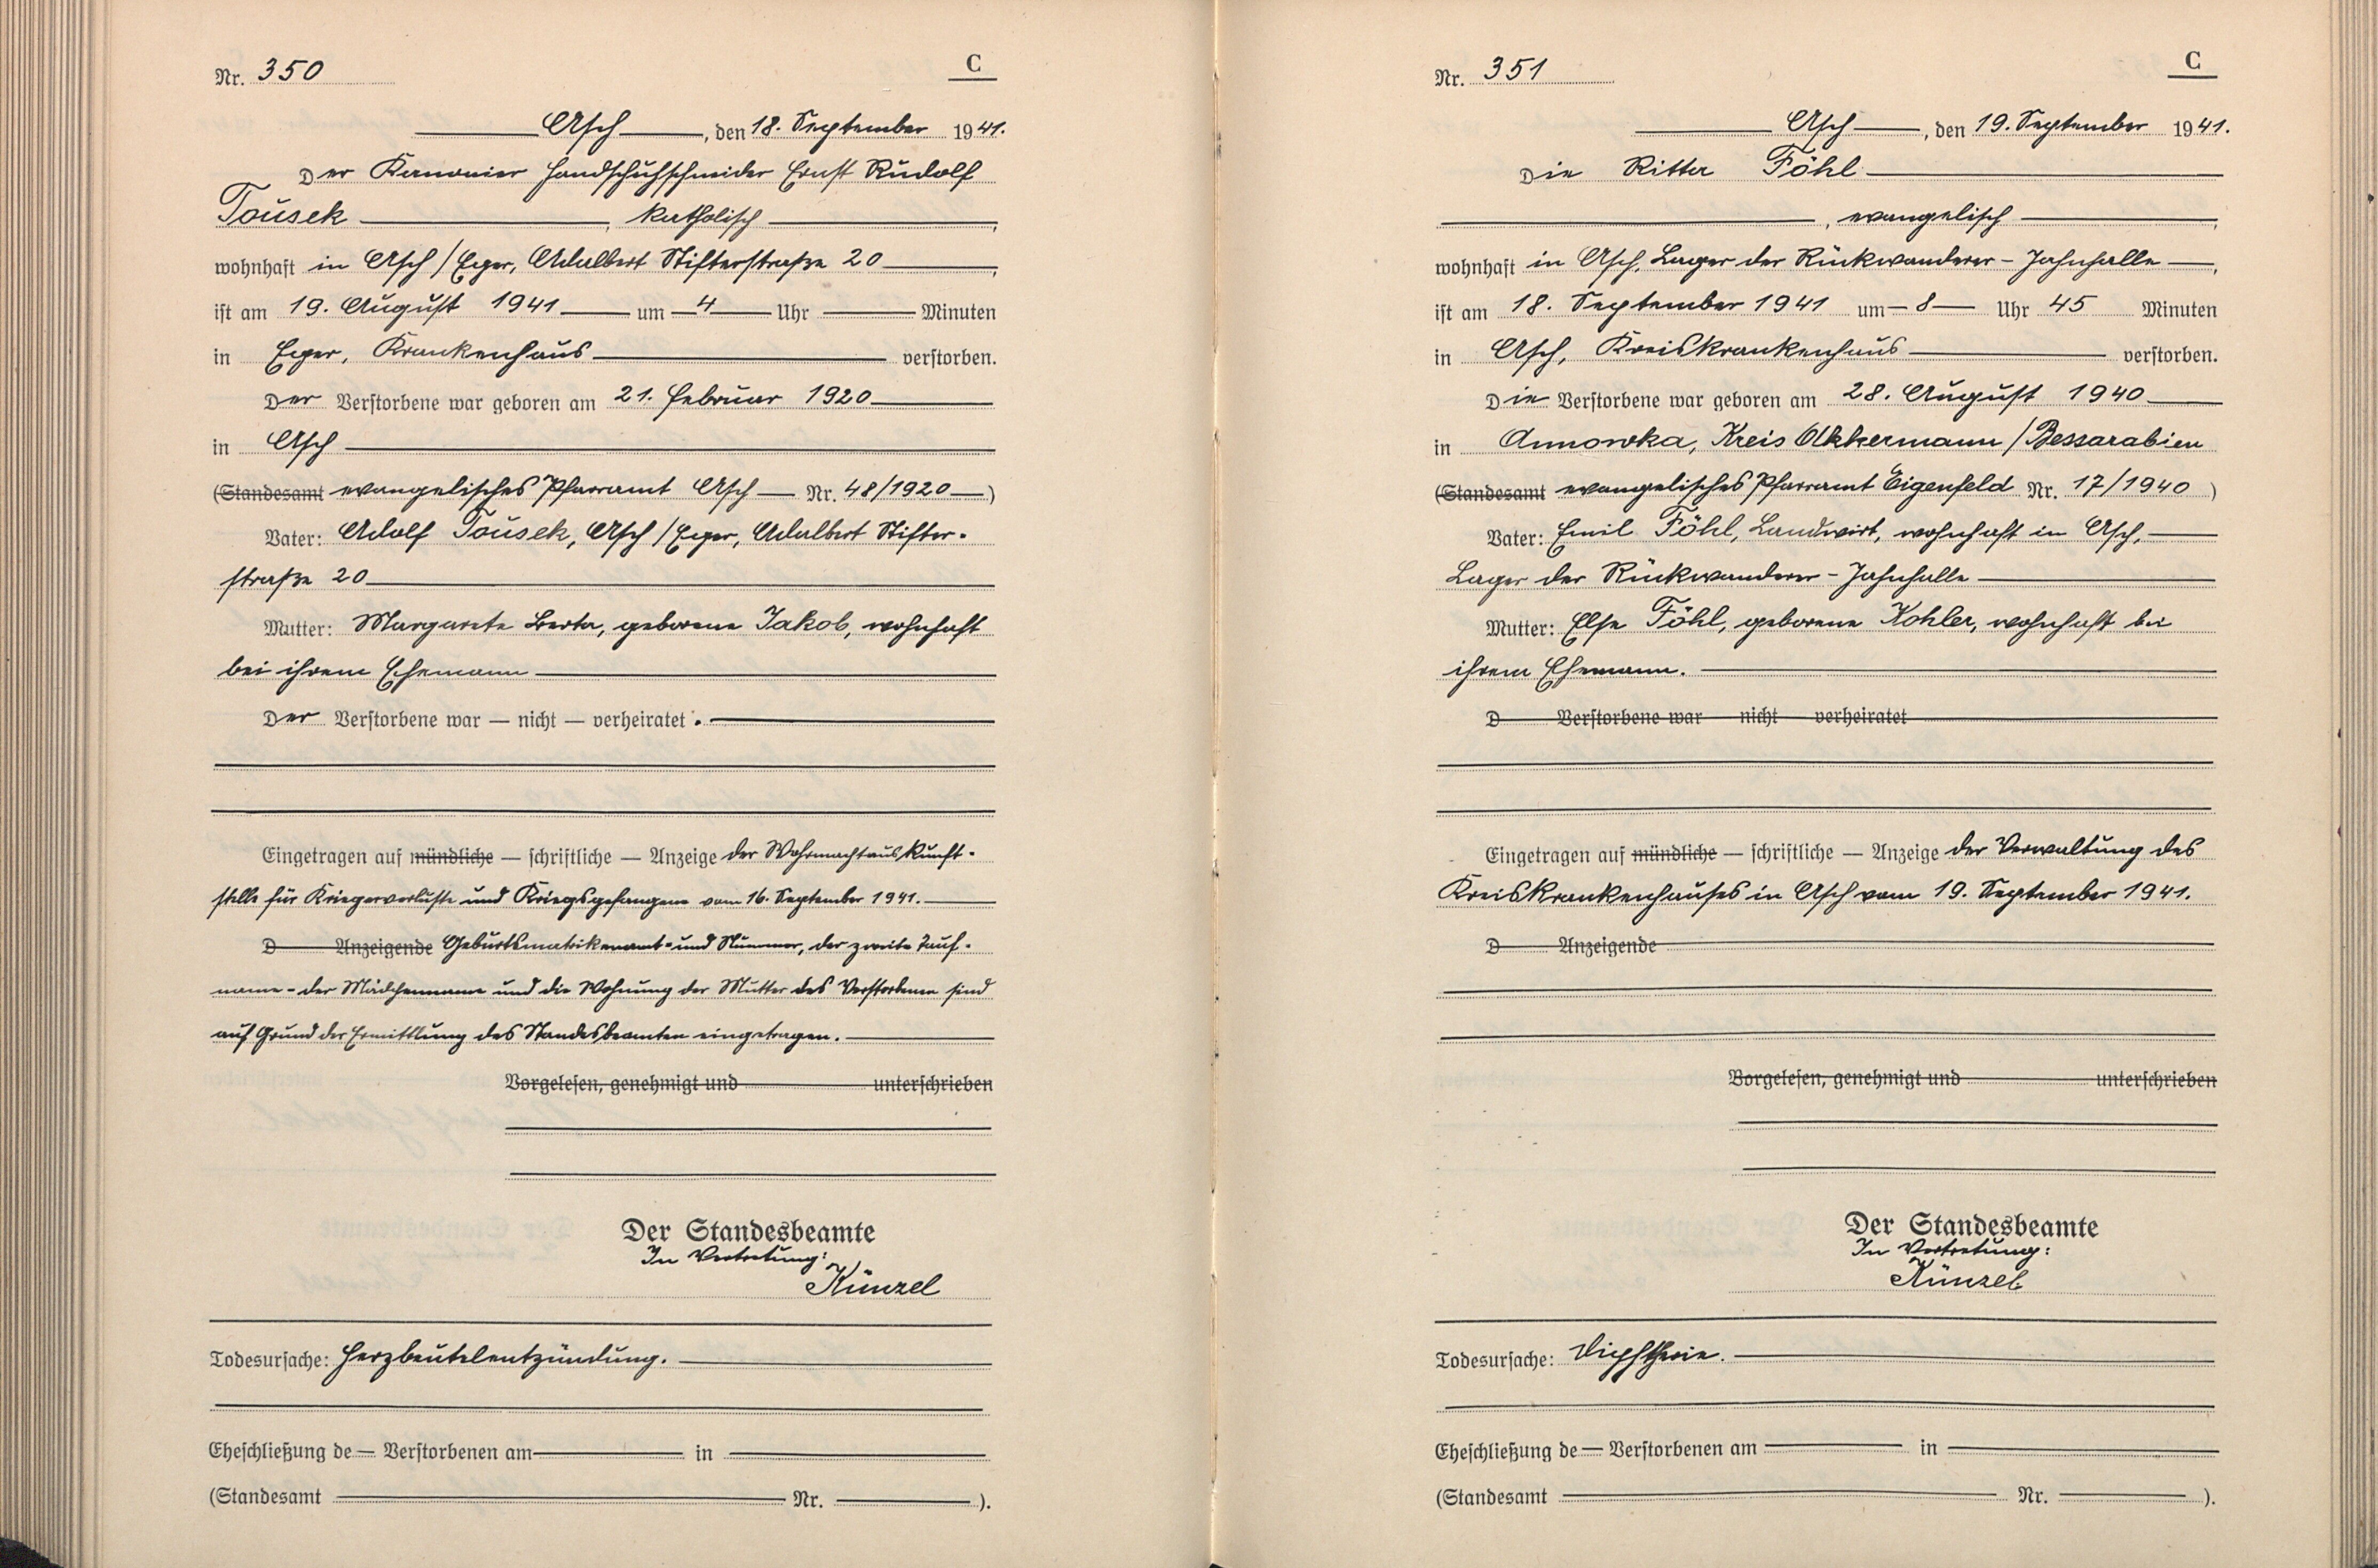 Nr. 350
C
Asch, den 18. September 1941.
Der Kanonier Handschuhschneider Ernst Rudolf
Tousek, katholisch,
wohnhaft in Asch/Eger, Adalbert Stifterstraße 20,
ist am 19. August 1941 um 4 Uhr Minuten
in Eger, Krankenhaus verstorben.
Der Verstorbene war geboren am 21. Februar 1920
in Asch
(Standesamt evangelisches Pfarramt Asch Nr. 48/1920)
Vater: Adolf Tousek, Asch/Eger, Adalbert Stifter-
straße 20
Mutter: Margarete Berta, geborene Jakob, wohnhaft
bei ihrem Ehemann
Der Verstorbene war — nicht — verheiratet.
Eingetragen auf mündliche — schriftliche — Anzeige der Wehrmachtauskunft-
stelle für Kriegerverluste und Kriegsgefangene vom 16. September 1941.
D Anzeigende Geburtsmatrikenamt- und Nummer, der zweite Tauf-
name - der Mädchenname und die Wohnung der Mutter des Verstorbenen sind
auf Grund der Ermittlung des Standesbeamten eingetragen.
Vorgelesen, genehmigt und unterschrieben
Der Standesbeamte
In Vertretung:
Künzel
Todesursache: Herzbeutelentzündung.
Eheschließung de — Verstorbenen am in
(Standesamt Nr. ).
Nr. 351
C
Asch, den 19. September 1941.
Die Ritta Föhl
, evangelisch,
wohnhaft in Asch, Lager der Rückwanderer - Jahnhalle,
ist am 18. September 1941 um 8 Uhr 45 Minuten
in Asch, Kreiskrankenhaus verstorben.
Die Verstorbene war geboren am 28. August 1940
in Annowka, Kreis Akkermann/Bessarabien
(Standesamt evangelisches Pfarramt Eigenfeld Nr. 17/1940)
Vater: Emil Föhl, Landwirt, wohnhaft in Asch,
Lager der Rückwanderer - Jahnhalle
Mutter: Else Föhl, geborene Kohler, wohnhaft bei
ihrem Ehemann.
D Verstorbene war — nicht — verheiratet
Eingetragen auf mündliche — schriftliche — Anzeige der Verwaltung des
Kreiskrankenhauses in Asch vom 19. September 1941.
D Anzeigende
Vorgelesen, genehmigt und unterschrieben
Der Standesbeamte
In Vertretung:
Künzel
Todesursache: Diphtherie.
Eheschließung de — Verstorbenen am in
(Standesamt Nr. ).